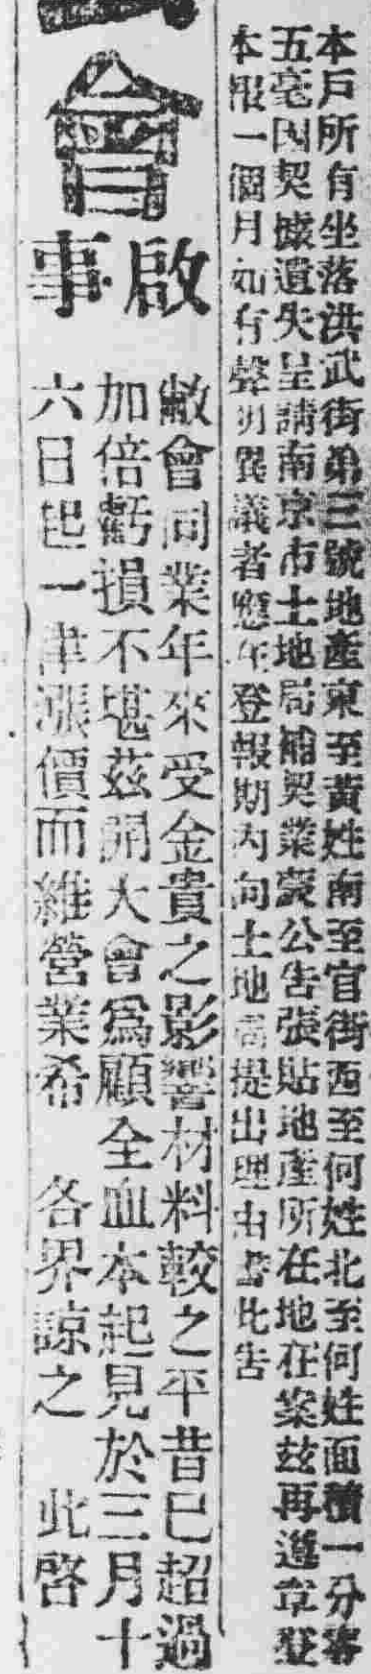 本戶所有坐落洪武街第三號地產東至黃姓南至官街西至何姓北至何姓面積一分零
五毫因契據遺失呈請南京市土地局補契業蒙公告張貼地產所在地在案茲再遵章登
本報一個月如有聲明異議者應在登報期內向土地局提出理由書此告
會
啟事
敝會同業年來受金貴之影響材料較之平昔已超過
加倍虧損不堪茲開大會爲顧全血本起見於三月十
六日起一律漲價而維營業希 各界諒之 此啓